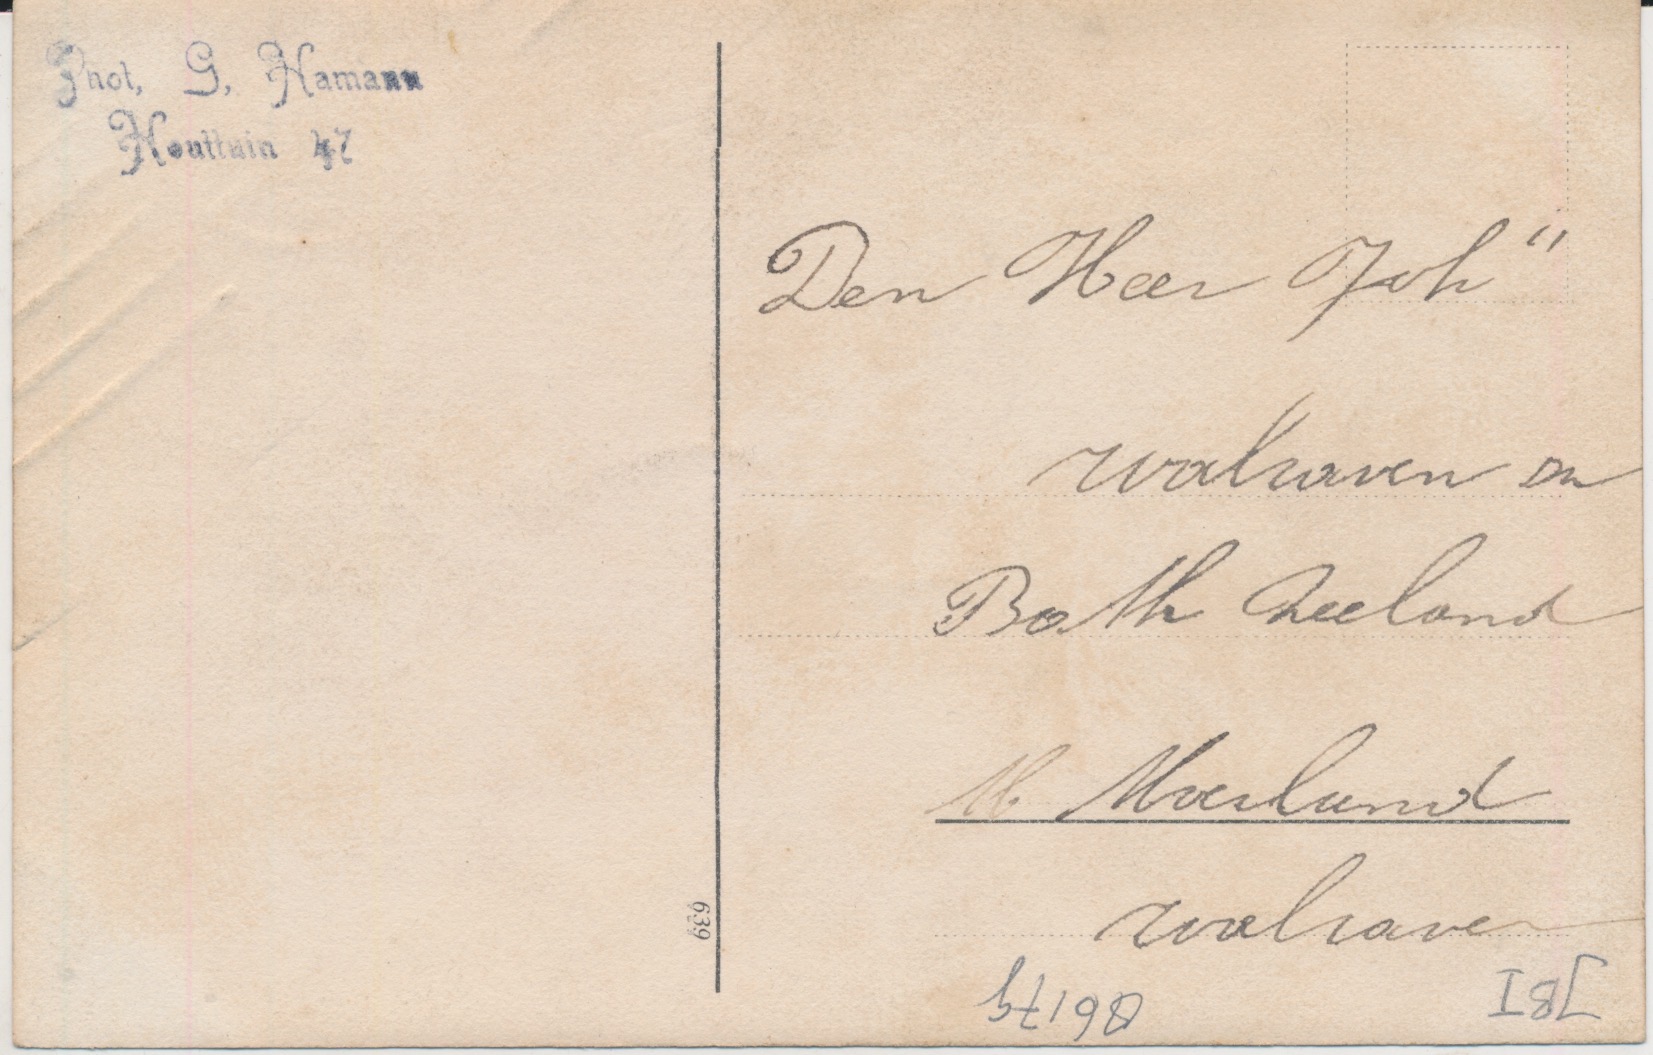 Phot, G, Hamann
Houttuin 47
Den Heer Joh"
walraven en
Bath Zeeland
M Moerland
walraven
639